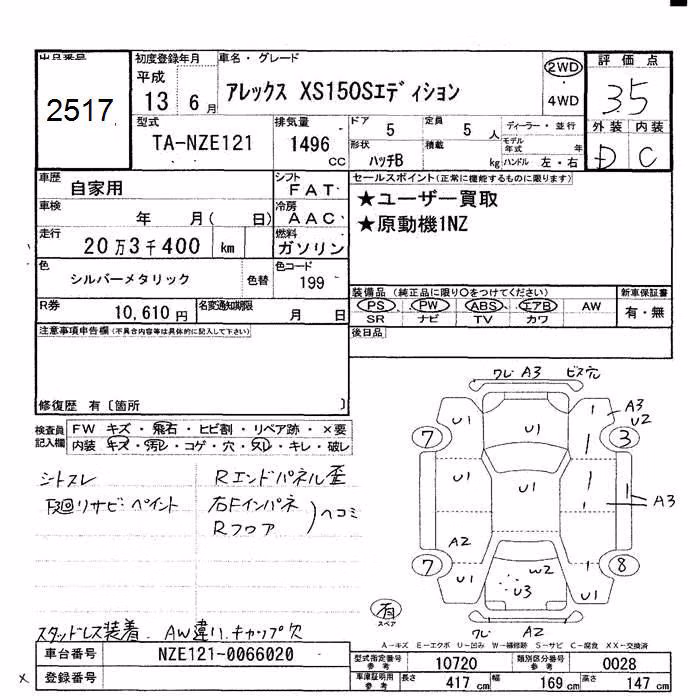 出品番号 2517
初度登録年月 平成 13年 6月
車名・グレード アレックス XS150Sエディション
2WD ・ 4WD
評価点 3.5
外装 D 内装 C
型式 TA-NZE121
排気量 1496 CC
ドア 5 定員 5人
形状 ハッチB 積載 kg
ディーラー・並行
モデル年式 年
ハンドル 左・右
車歴 自家用
シフト FAT
車検 年 月( 日)
冷房 AAC
走行 20万3千400 km
燃料 ガソリン
色 シルバーメタリック 色替
色コード 199
R券 10,610円
名変通知期限 月 日
セールスポイント(正常に機能するものに限ります)
★ユーザー買取
★原動機1NZ
装備品 (純正品に限り○をつけてください)
PS ・ PW ・ ABS ・ エアB ・ AW
SR ナビ TV カワ
新車保証書 有・無
後日品
注意事項申告欄(不具合内容等は具体的に記入して下さい)
修復歴 有〔箇所 〕
検査員記入欄
FW キズ・飛石・ヒビ割・リペア跡・×要
内装 キズ・汚レ・コゲ・穴・スレ・キレ・破レ
シトスレ
下廻リサビ・ペイント
Rエンドパネル歪
右Fインパネ
Rフロア
ヘコミ
スタッドレス装着. AW違い. キャップ欠
ワレ A3 ビス穴
U1 A3 U2
7 3
U1 U1
A3
A2
7 8
U1 W2 U3 U1
A2
有 スペア
A-キズ E-エクボ U-凹み W-補修跡 S-サビ C-腐食 XX-交換済
車台番号 NZE121-0066020
登録番号
型式指定番号 参考 10720
類別区分番号 参考 0028
車庫証明用 参考 長さ 417 cm 幅 169 cm 高さ 147 cm
×